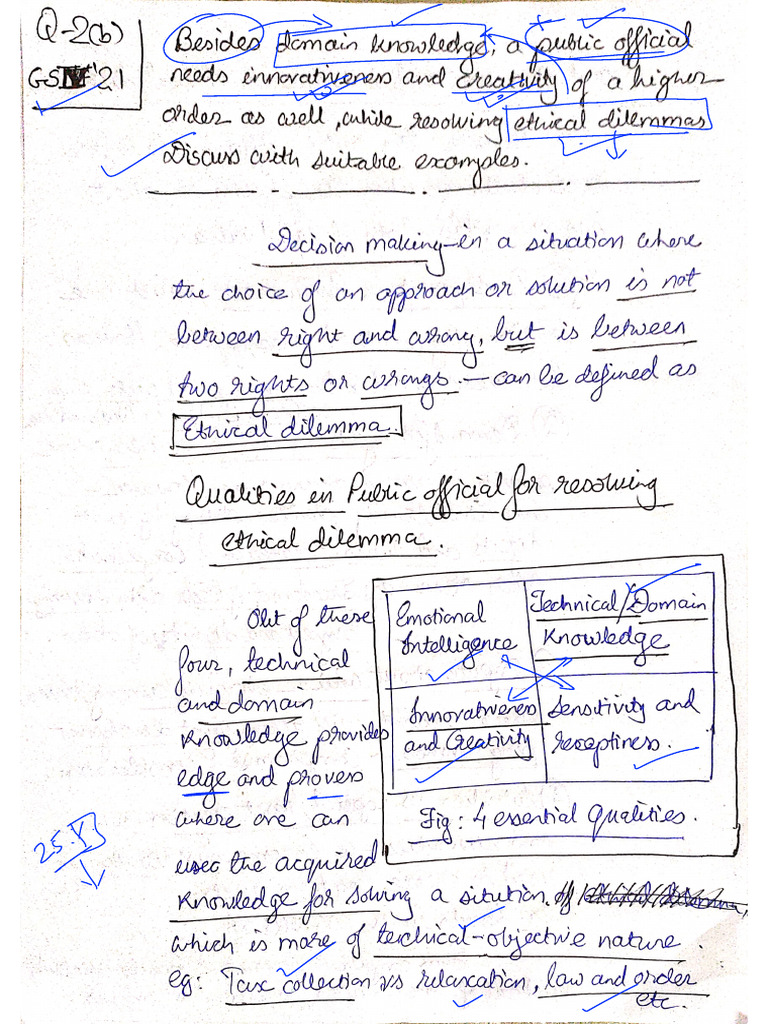 Q-2(b)
GSIV'21
Besides domain knowledge, a public official
needs innovativeness and creativity of a higher
order as well, while resolving ethical dilemmas
Discuss with suitable examples.
Decision making - in a situation where
the choice of an approach or solution is not
between right and wrong, but is between
two rights or wrongs. - can be defined as
Ethical dilemma.
Qualities in Public official for resolving
ethical dilemma.
Out of these
four, technical
and domain
knowledge provides
edge and proves
where one can
uses the acquired
knowledge for solving a sitution. of
which is more of techical-objective nature.
eg: Tax collection vs relaxation, law and order
etc.
Emotional
Intelligence
Technical/Domain
Knowledge
Innovativeness
and Creativity
Sensitivity and
receptiness.
Fig: 4 essential Qualities.